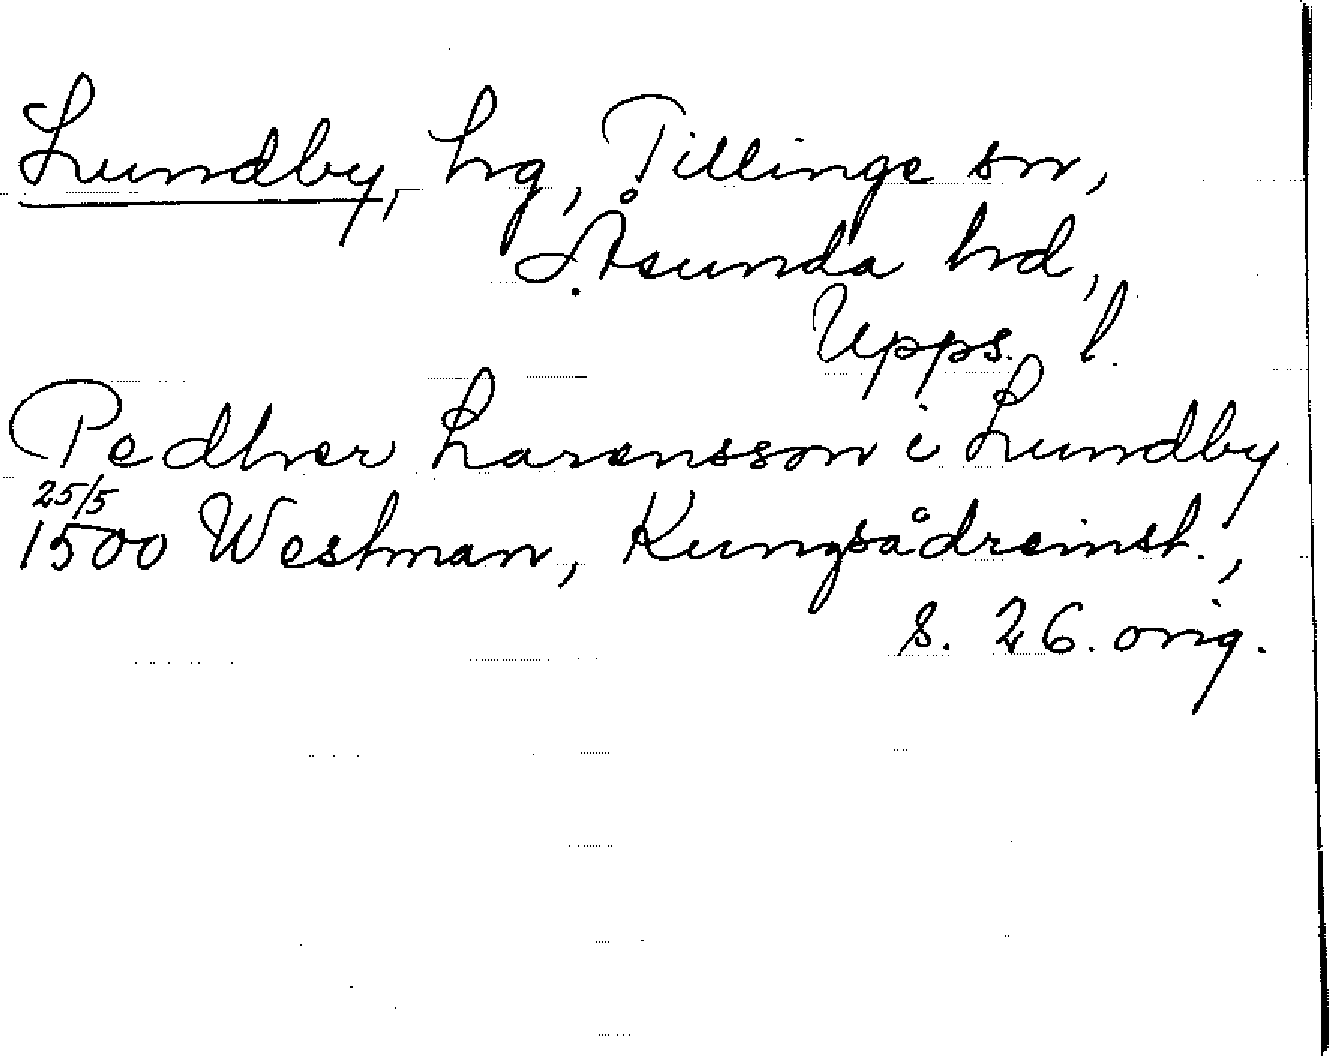 Lundby, hg, Tillinge sn,
Åsunda hd,
Upps. l.
Pedher Larensson i Lundby
25/5
1500 Westman, Kungsådreinst.,
s. 26. orig.